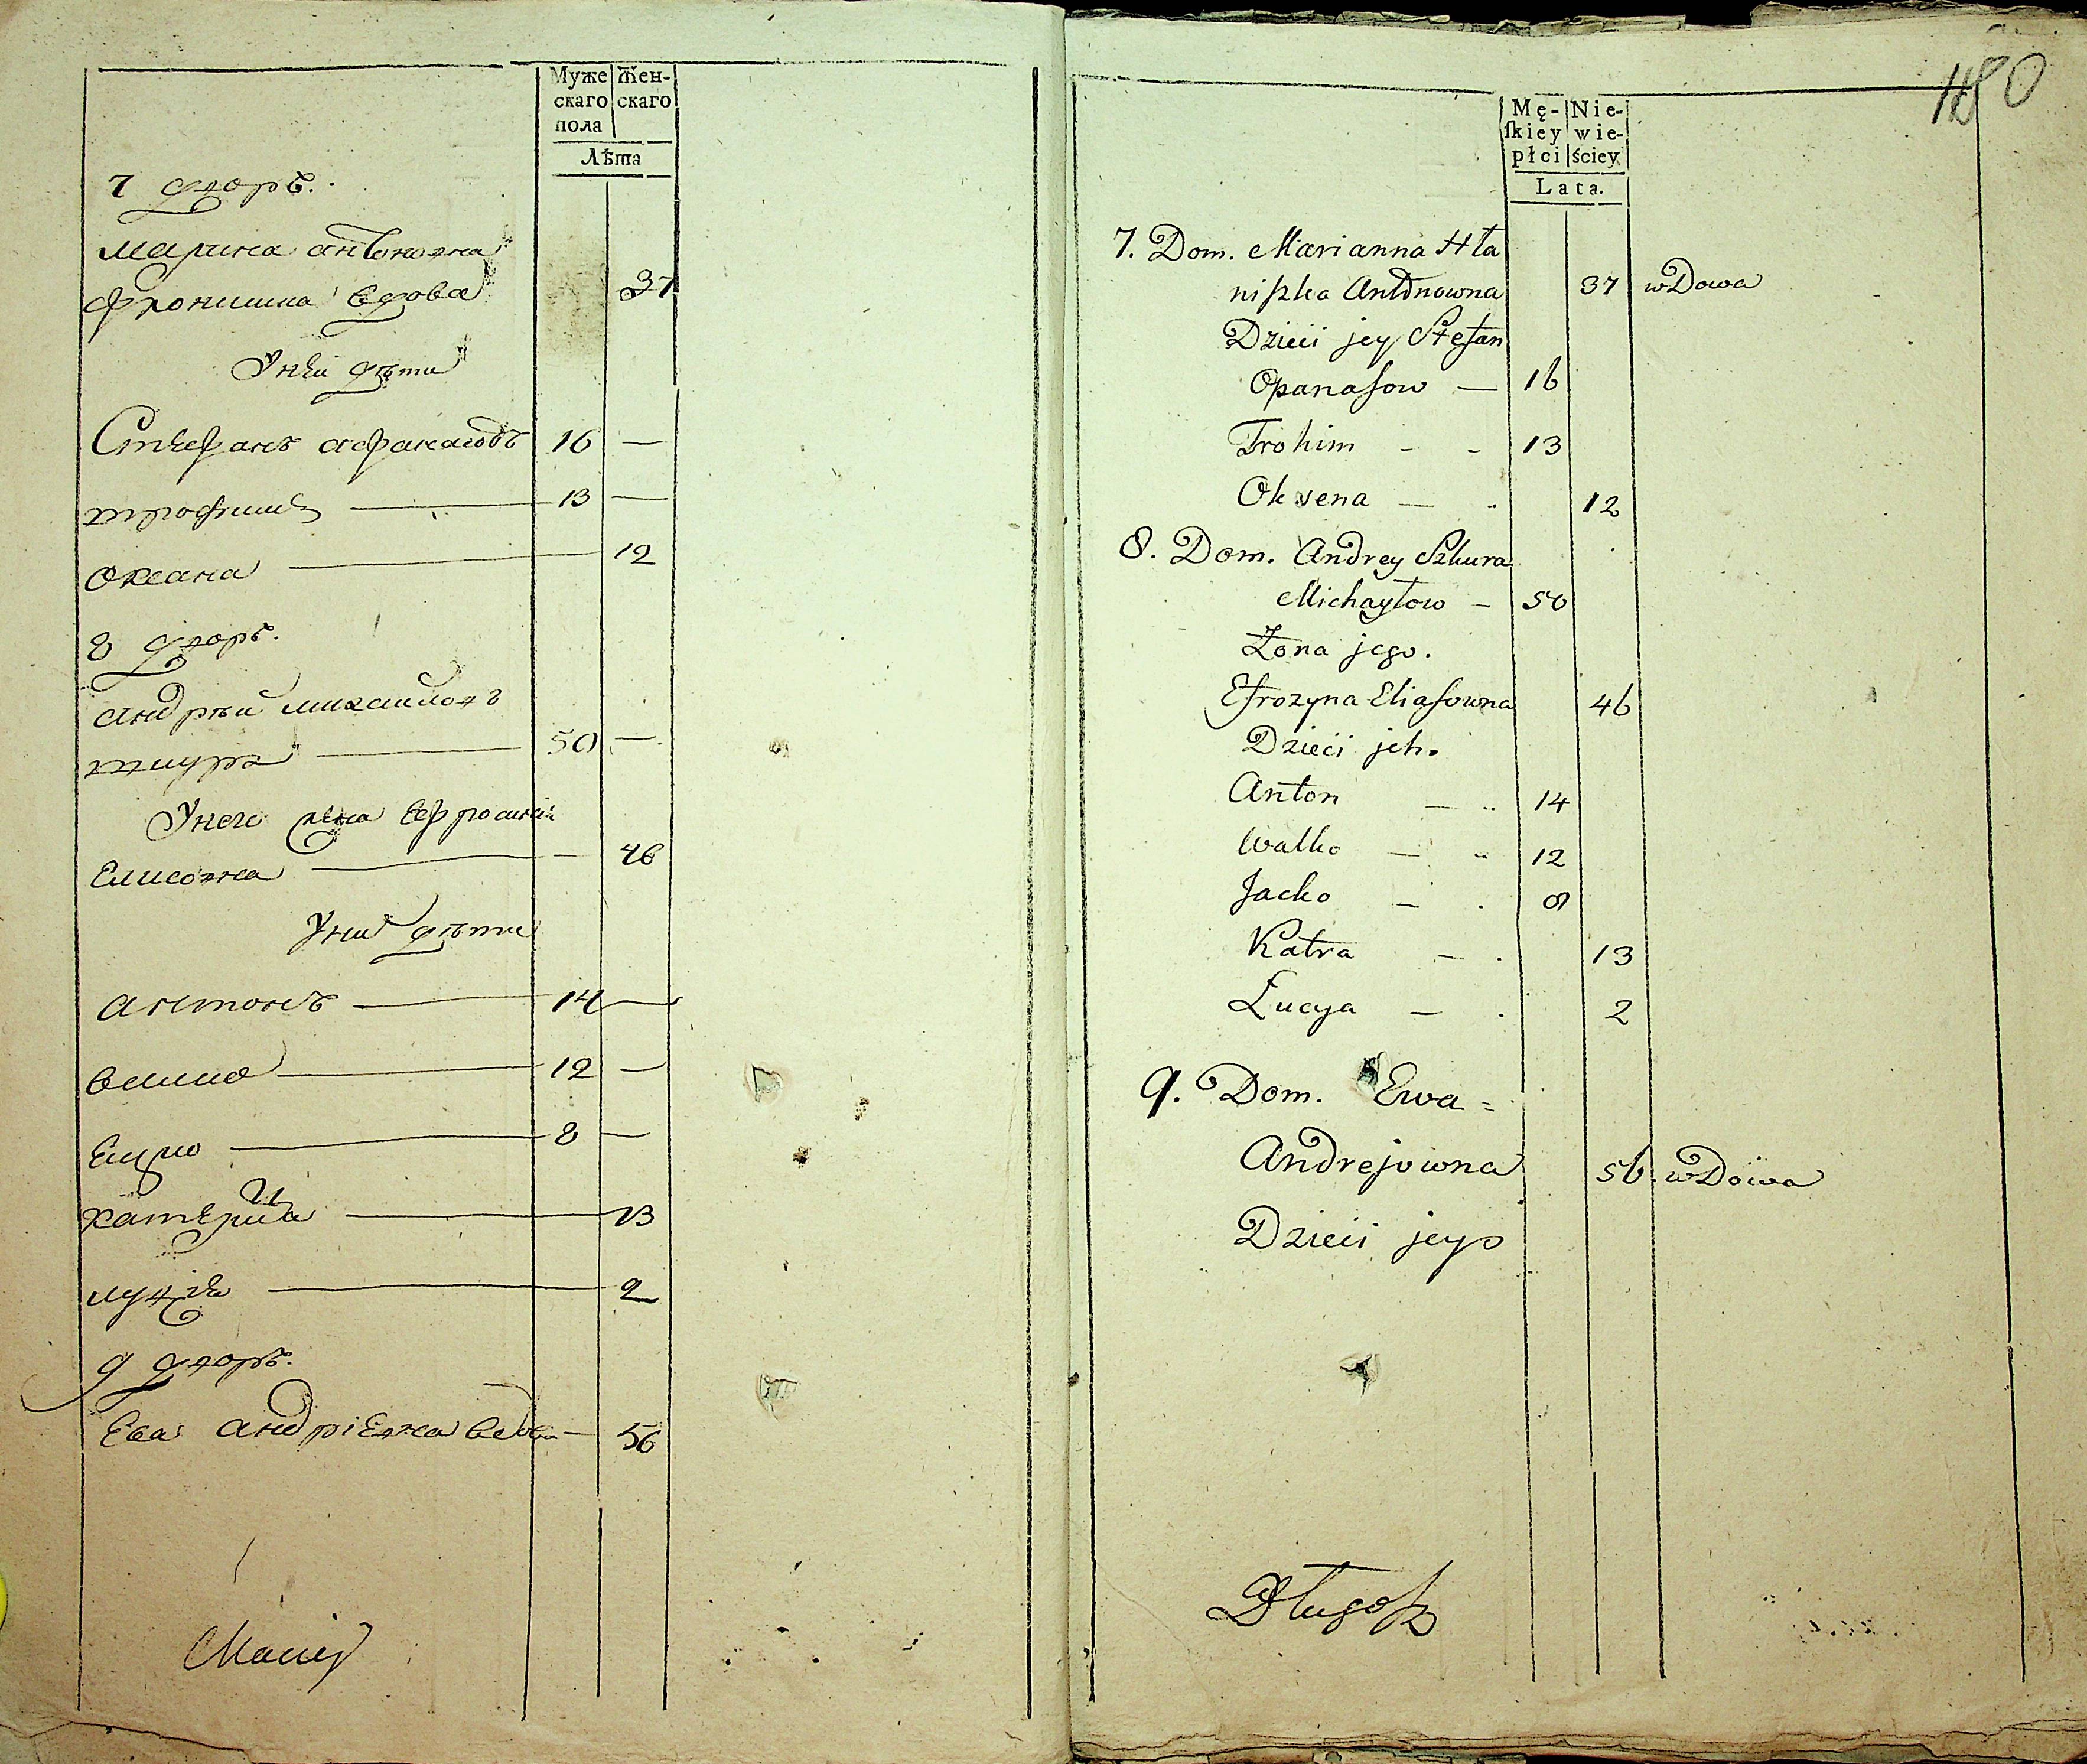 Муже
скаго
пола
Жен-
скаго
Лѣта
7 дворъ.
Марина антоновна
вдова 37
У ней дѣти
Стефанъ афанасовъ 16 —
трофимъ — 13 —
Оксана — 12
8 дворъ.
андрѣй михайловъ
— 50 —
У него жена Ефросиния
Елисовна — 46
У них дѣти
антонъ — 14 —
— 12 —
— 8 —
катерина — 13
— 2
9 дворъ.
Ева андріевна вдова — 56
Maciej
180
Mę-
ſkiey
płci
Nie-
wie-
ściey
Lata.
7. Dom. Marianna Hła
niſzka Antonowna 37 wDowa
Dzieci jey Stefan
Opanaſow — 16
Trohim - - 13
Oksena — 12
8. Dom. Andrey Szkura
Michayłow — 50
Żona jego.
Efrozyna Eliaſowna 46
Dzieci jch.
Anton — 14
Walko — 12
Jacko — 8
Katra — 13
Łucya — 2
9. Dom. Ewa =
Andrejowna 56 wDowa
Dzieci jey
Długoſz